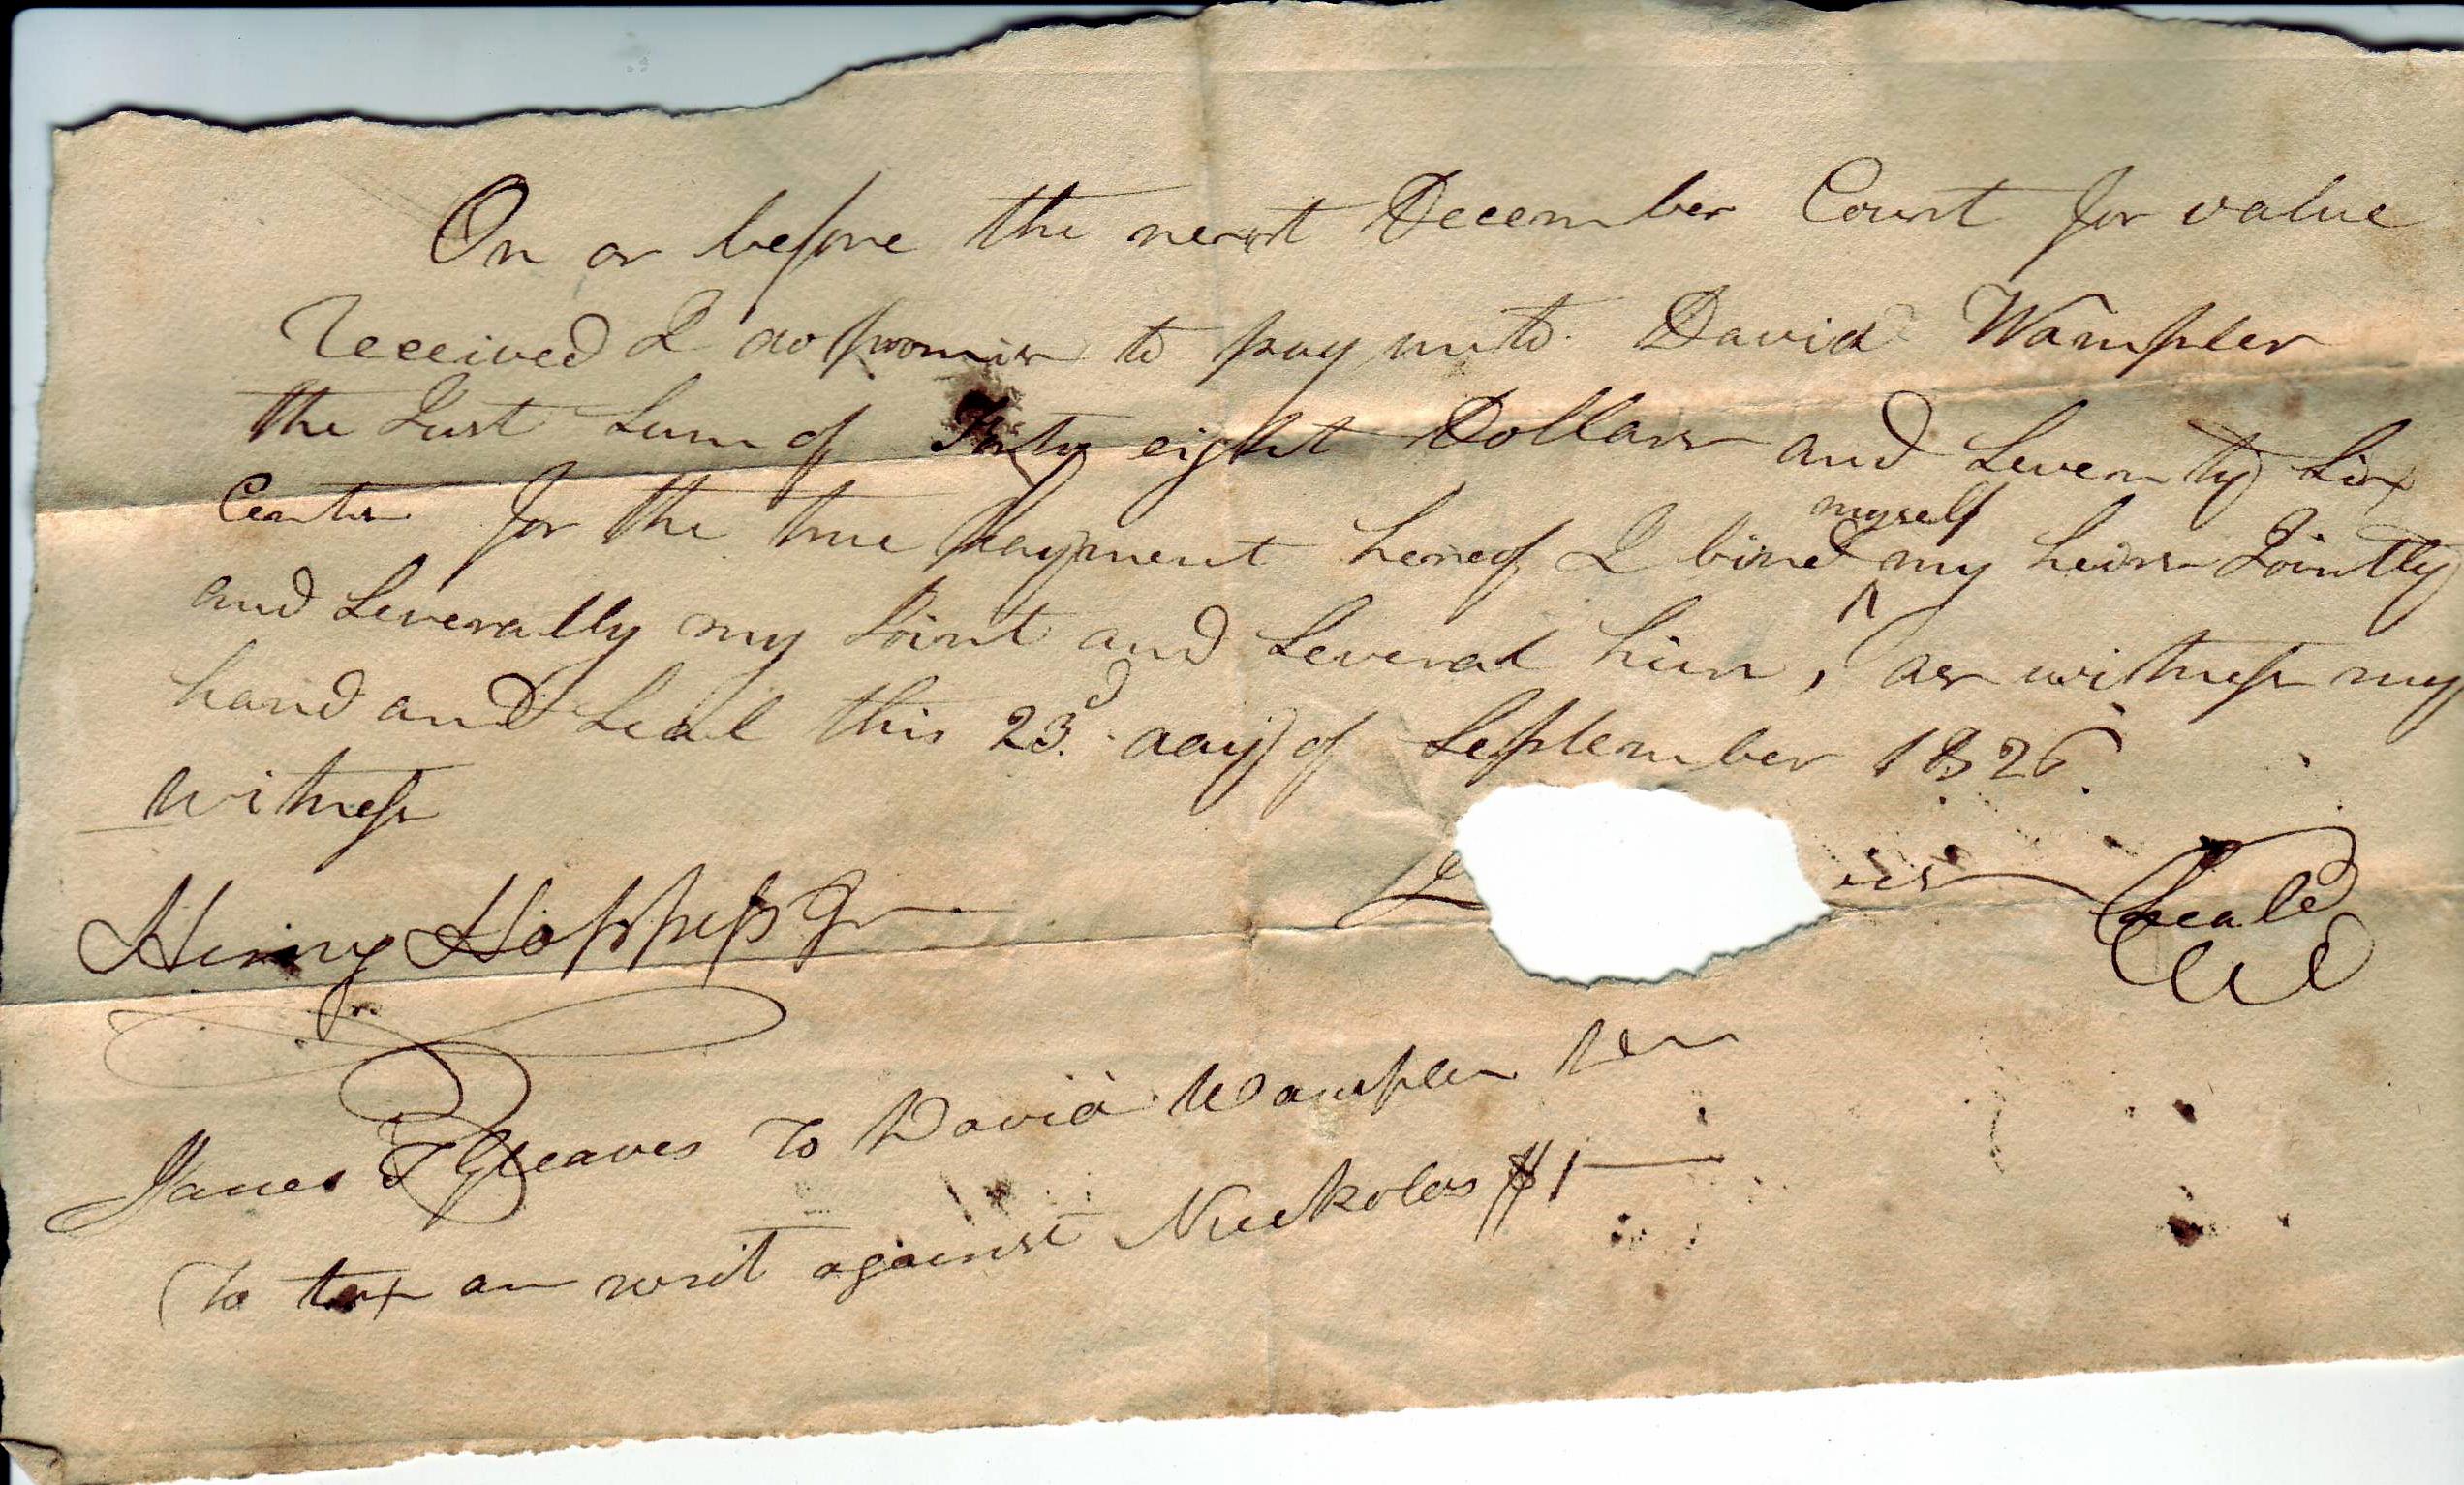 On or before the next December Court for value
received I do promise to pay unto David Wampler
the Just Sum of Forty eight Dollars and Seventy Six
Cents for the true payment hereof I bind myself my heirs Jointly
and Severally my Joint and Several heirs, as witness my
hand and Seal this 23.d day of September 1826.
witness
Henry Hoppess Jr
Seald
James T Gleaves To David Wampler
To tax on writ against Nuckolos $1